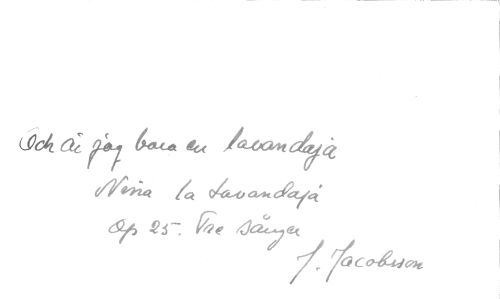 Och äi jag bara en lavandaja
Nina la Lavandajá
Op 25. Tre sånger
J. Jacobsson